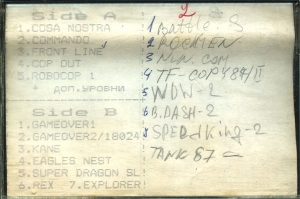 Side A
1. COSA NOSTRA
2. COMMANDO
3. FRONT LINE
4. COP OUT
5. ROBOCOP 1
+ ДОП. УРОВНИ
Side B
1. GAMEOVER1
2. GAMEOVER2/18024
3. KANE
4. EAGLES NEST
5. SUPER DRAGON SL
6. REX 7. EXPLORER!
2
1 Battle
2
3
4 TF-COPY 87/II
5 WDW-2
6 B.DASH-2
8 SPEEDKing-2
TANK 87